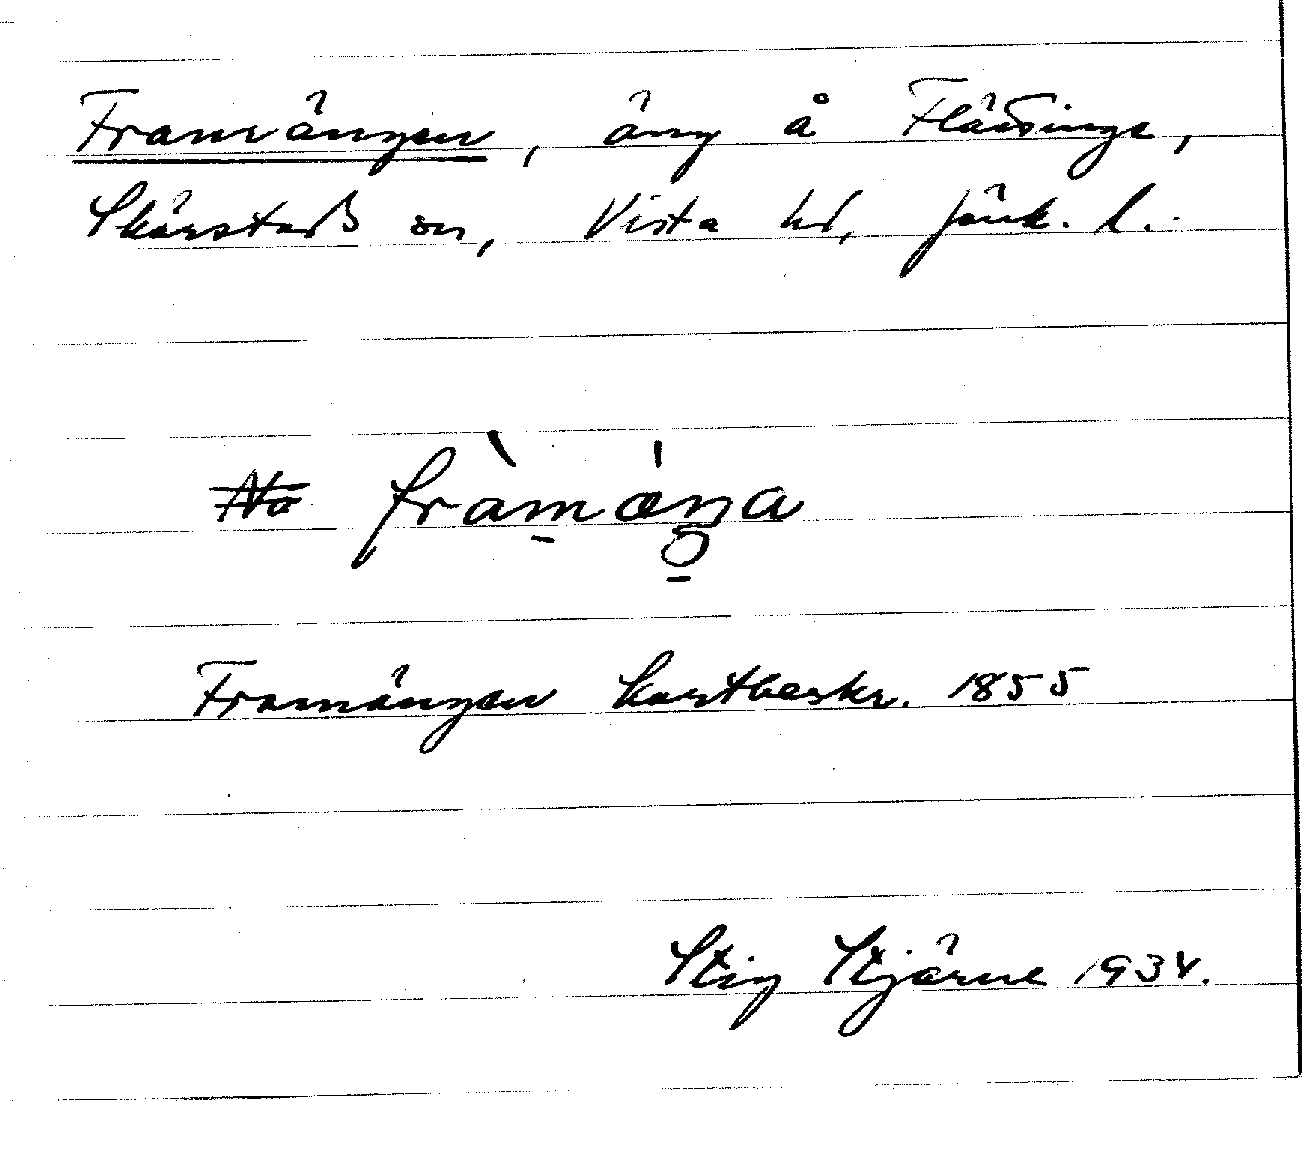 Framängen, äng å Flättinge,
Skärstads sn, Vista hd, Jönk. l.
framæŋa
Framängen kartbeskr. 1855
Stig Stjärne 1934.